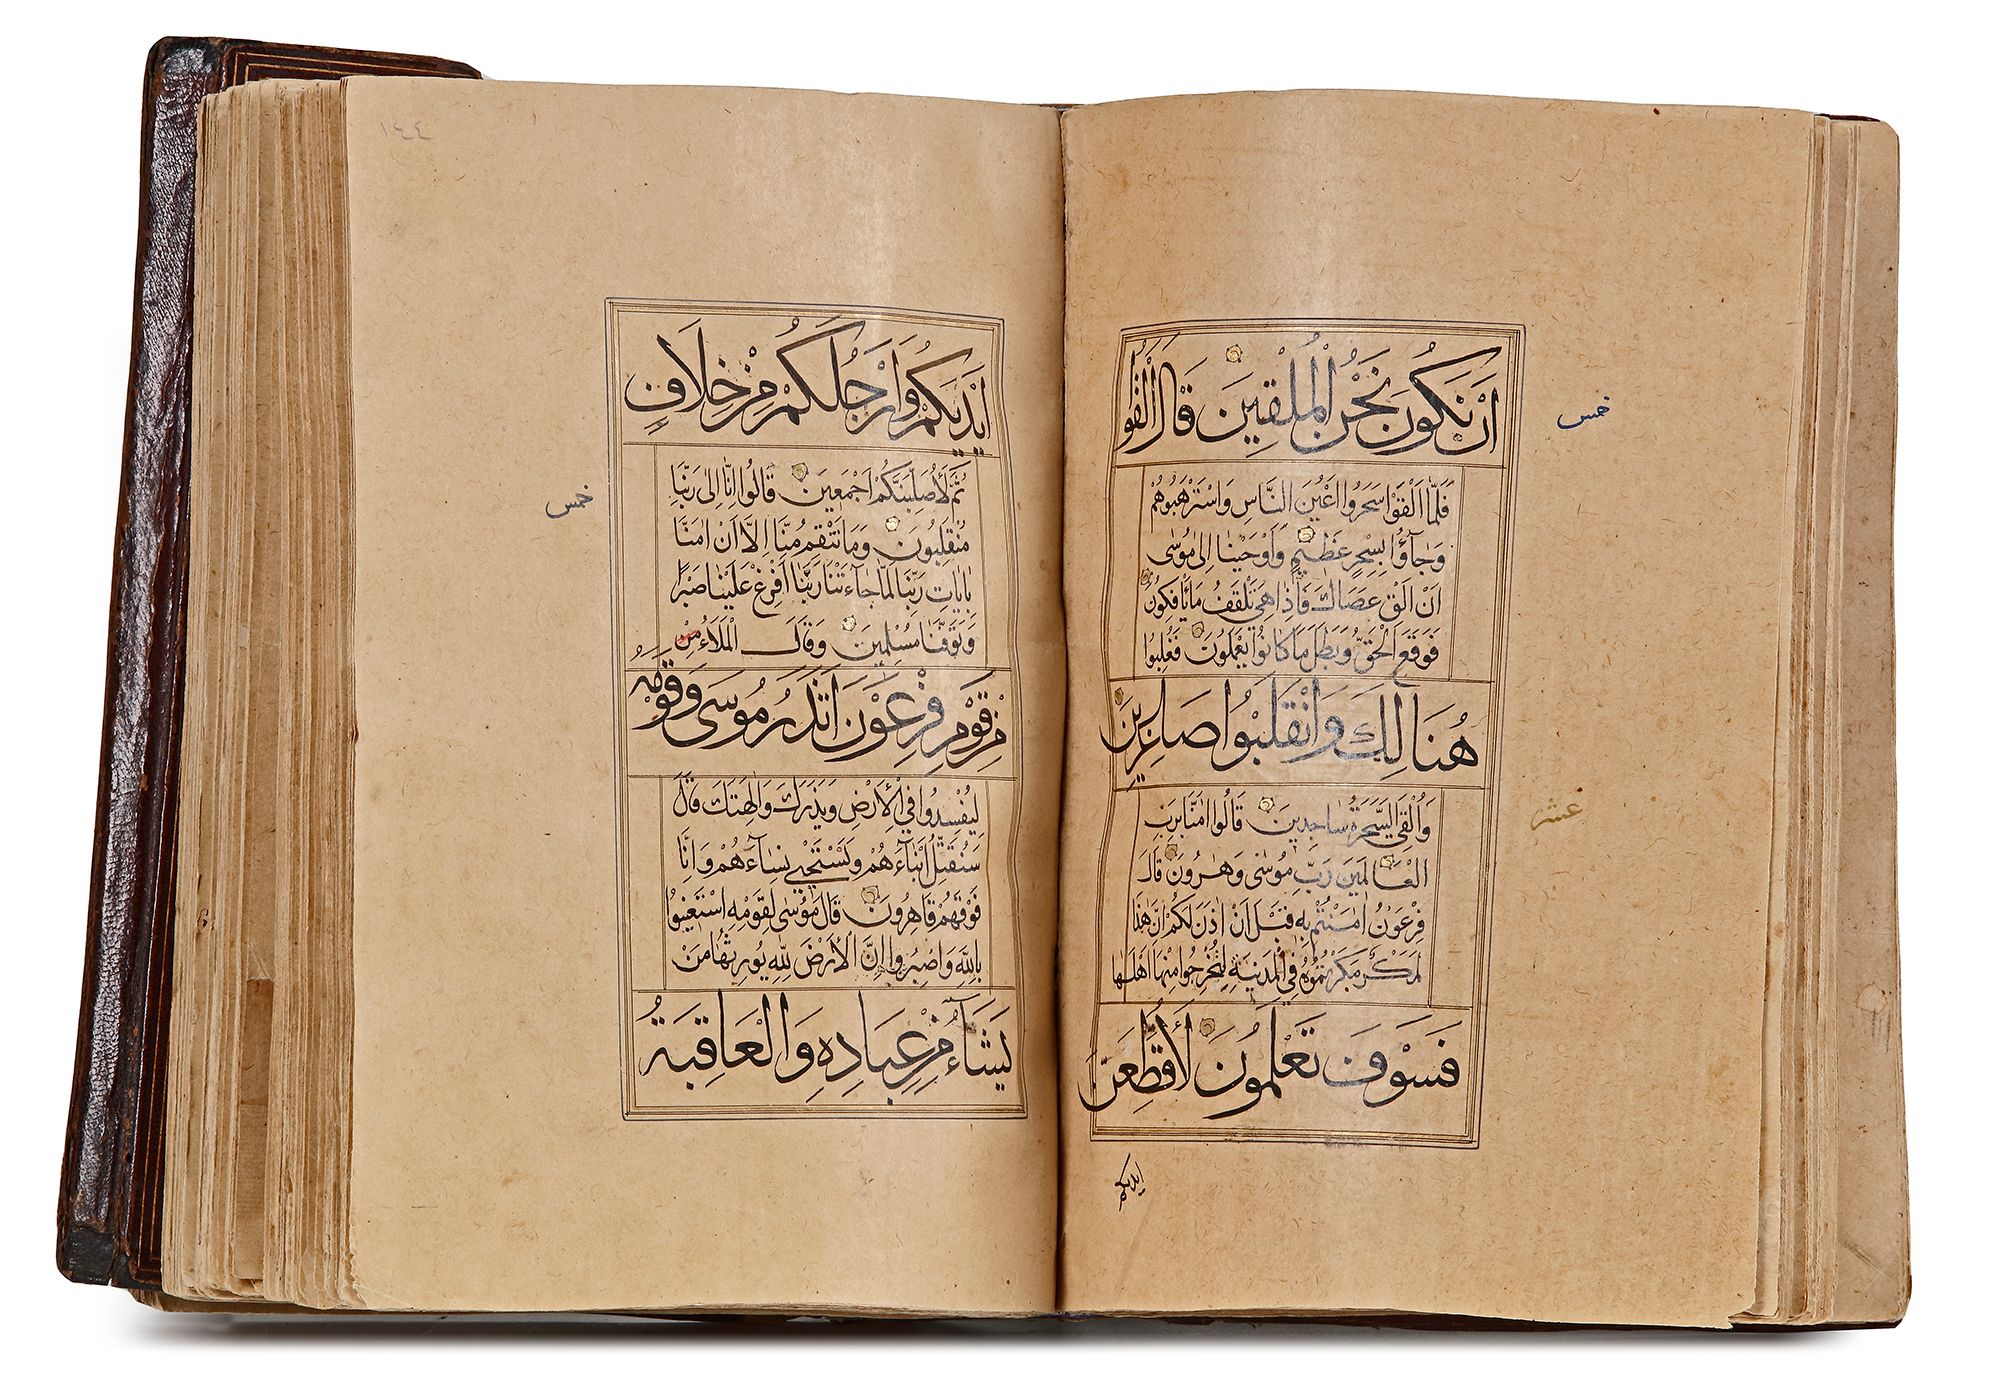 اَنْ نَكُونَ نَحْنُ الْمُلْقِينَ قَالَ اَلْقُوا
فَلَمَّا اَلْقَوْا سَحَرُوا اَعْيُنَ النَّاسِ وَاسْتَرْهَبُوهُمْ
وَجَاؤُا بِسِحْرٍ عَظِيمٍ وَاَوْحَيْنَا اِلَى مُوسَى
اَنْ اَلْقِ عَصَاكَ فَاِذَا هِيَ تَلْقَفُ مَا يَأْفِكُونَ
فَوَقَعَ الْحَقُّ وَبَطَلَ مَا كَانُوا يَعْمَلُونَ فَغُلِبُوا
هُنَالِكَ وَانْقَلَبُوا صَاغِرِينَ
وَاُلْقِيَ السَّحَرَةُ سَاجِدِينَ قَالُوا اٰمَنَّا بِرَبِّ
الْعَالَمِينَ رَبِّ مُوسَى وَهٰرُونَ قَالَ
فِرْعَوْنُ اٰمَنْتُمْ بِهِ قَبْلَ اَنْ اٰذَنَ لَكُمْ اِنَّ هٰذَا
لَمَكْرٌ مَكَرْتُمُوهُ فِي الْمَدِينَةِ لِتُخْرِجُوا مِنْهَا اَهْلَهَا
فَسَوْفَ تَعْلَمُونَ لَأُقَطِّعَنَّ
خمس
عشر
ايديكم
١٤٤
اَيْدِيَكُمْ وَاَرْجُلَكُمْ مِنْ خِلَافٍ
ثُمَّ لَأُصَلِّبَنَّكُمْ اَجْمَعِينَ قَالُوا اِنَّا اِلَى رَبِّنَا
مُنْقَلِبُونَ وَمَا تَنْقِمُ مِنَّا اِلَّا اَنْ اٰمَنَّا
بِاٰيَاتِ رَبِّنَا لَمَّا جَاءَتْنَا رَبَّنَا اَفْرِغْ عَلَيْنَا صَبْرًا
وَتَوَفَّنَا مُسْلِمِينَ وَقَالَ الْمَلَاءُ مِنْ
مِنْ قَوْمِ فِرْعَوْنَ اَتَذَرُ مُوسَى وَقَوْمَهُ
لِيُفْسِدُوا فِي الْاَرْضِ وَيَذَرَكَ وَاٰلِهَتَكَ قَالَ
سَنُقَتِّلُ اَبْنَاءَهُمْ وَنَسْتَحْيِي نِسَاءَهُمْ وَاِنَّا
فَوْقَهُمْ قَاهِرُونَ قَالَ مُوسَى لِقَوْمِهِ اسْتَعِينُوا
بِاللّٰهِ وَاصْبِرُوا اِنَّ الْاَرْضَ لِلّٰهِ يُورِثُهَا مَنْ
يَشَاءُ مِنْ عِبَادِهِ وَالْعَاقِبَةُ
خمس